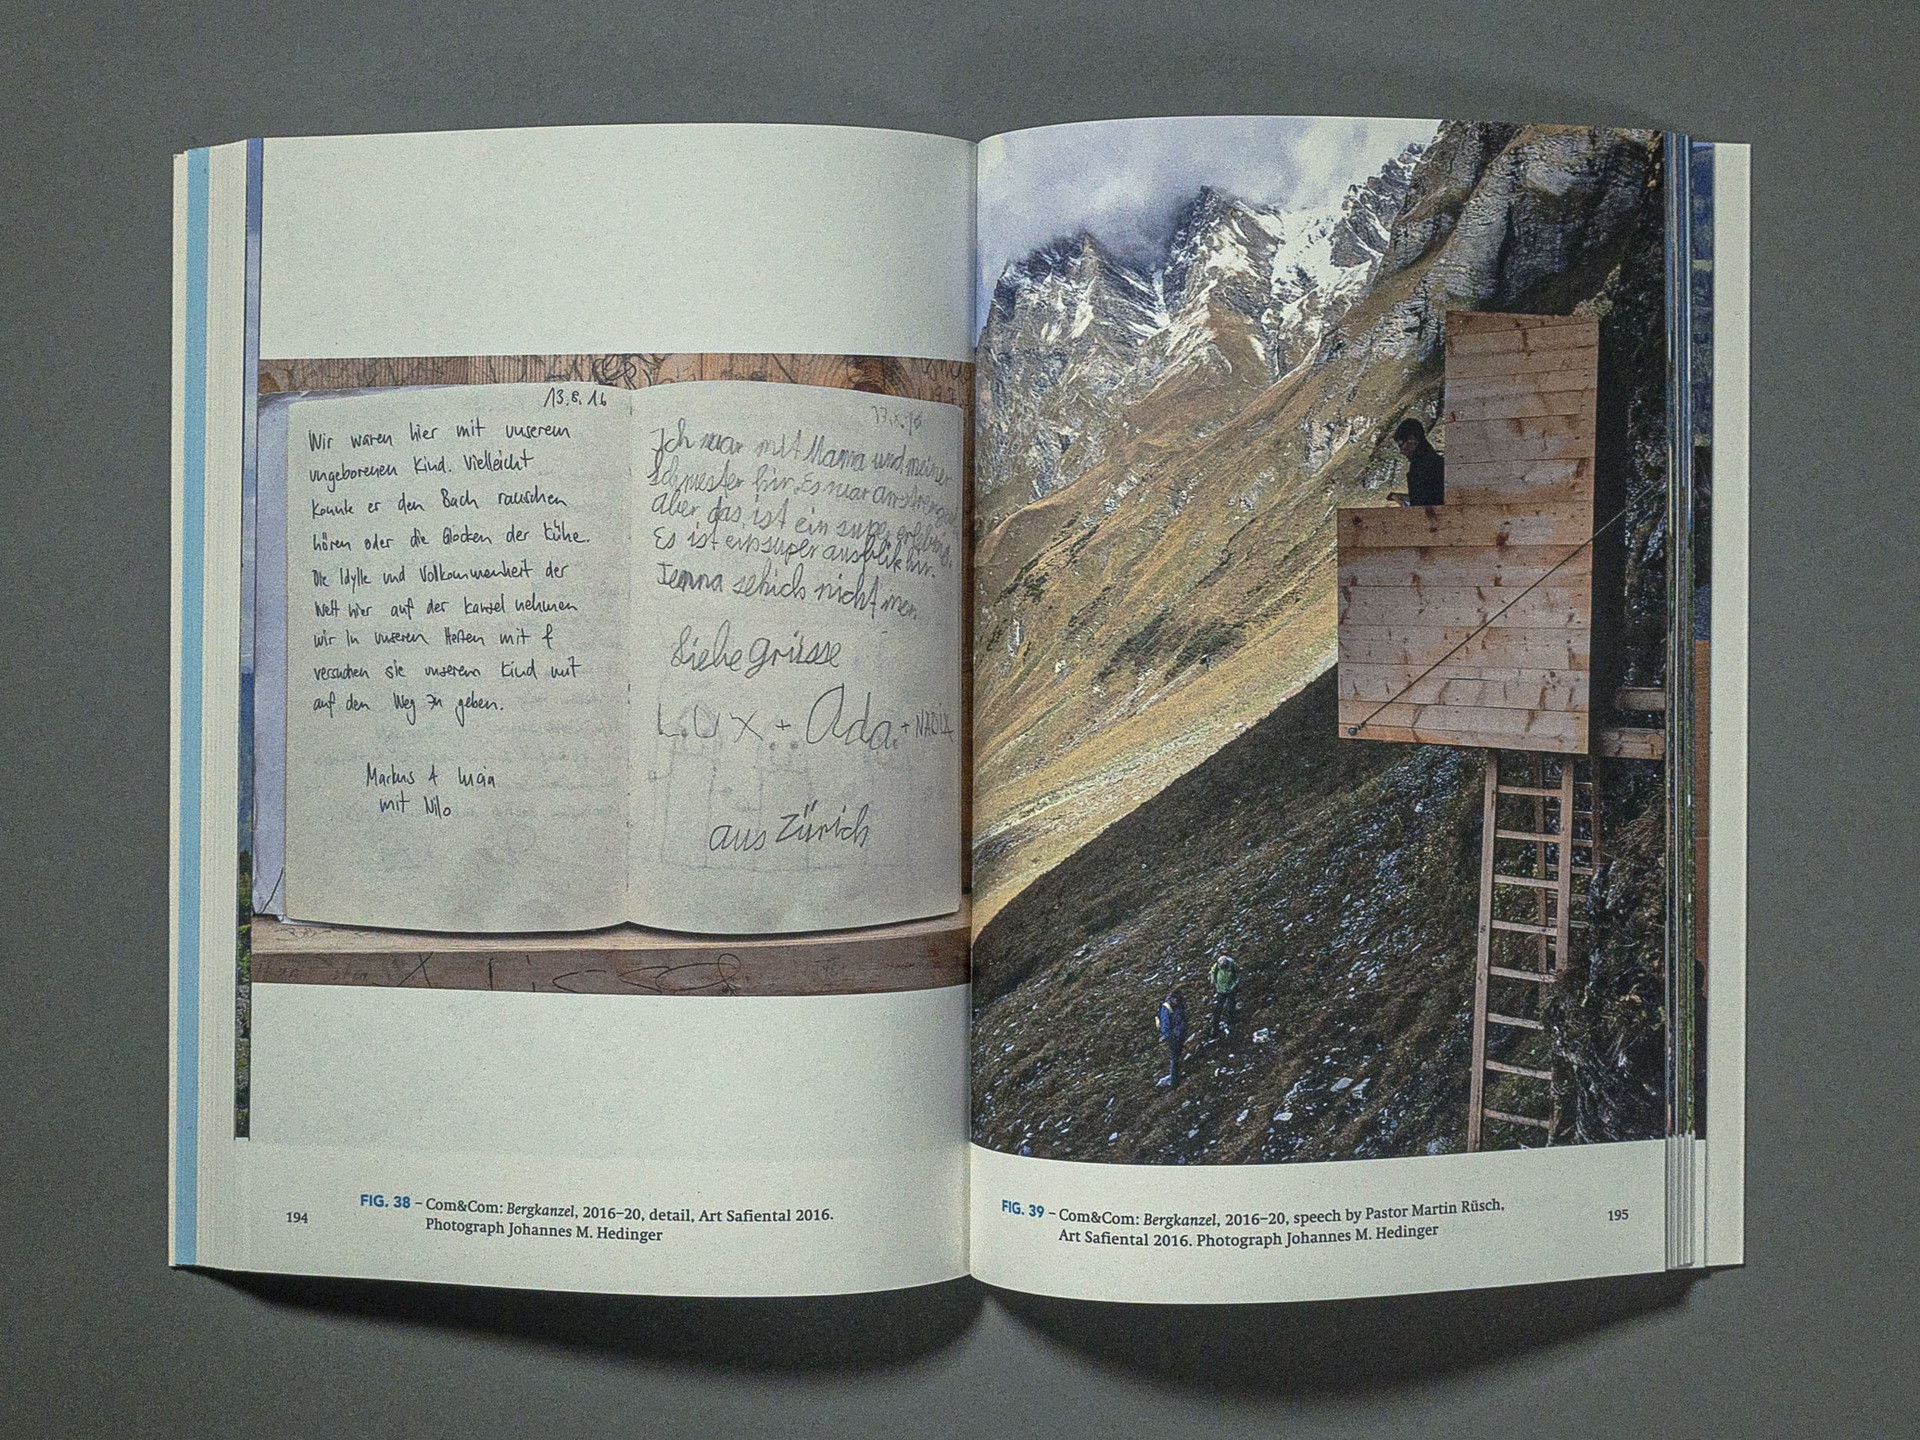 13.8.16
Wir waren hier mit unserem
ungeborenen Kind. Vielleicht
konnte er den Bach rauschen
hören oder die Glocken der Kühe.
Die Idylle und Vollkommenheit der
Welt hier auf der Kanzel nehmen
wir in unseren Herzen mit &
versuchen sie unserem Kind mit
auf den Weg zu geben.
Markus & Lucia
mit Nilo
Ich war mit Mama und meiner
Schwester hir. Es war anstrengend
Aber das ist ein super erlebnis.
Es ist ein super ausblik hir.
sehich nicht mer.
Liebe grüsse
LUX + Ada + NADIA
aus Zürich
194
FIG. 38 – Com&Com: Bergkanzel, 2016–20, detail, Art Safiental 2016.
Photograph Johannes M. Hedinger
FIG. 39 – Com&Com: Bergkanzel, 2016–20, speech by Pastor Martin Rüsch,
Art Safiental 2016. Photograph Johannes M. Hedinger
195